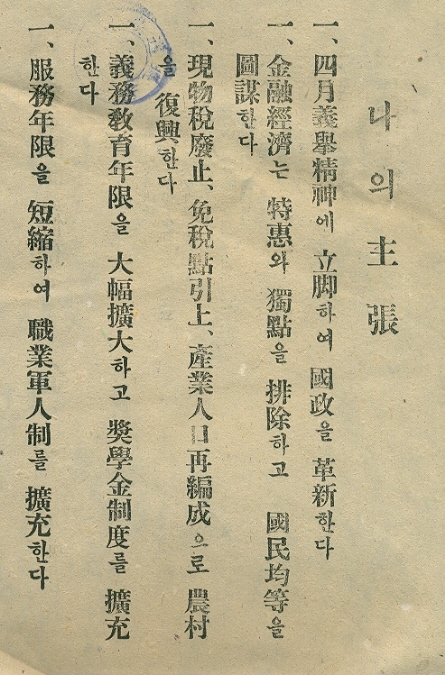 나의 主張
一、四月義擧精神에 立脚하여 國政을 革新한다
一、金融經濟는 特惠와 獨點을 排除하고 國民均等을
圖謀한다
一、現物稅廢止、免稅點引上、產業人口再編成으로 農村
을 復興한다
一、義務敎育年限을 大幅擴大하고 奬學金制度를 擴充
한다
一、服務年限을 短縮하여 職業軍人制를 擴充한다